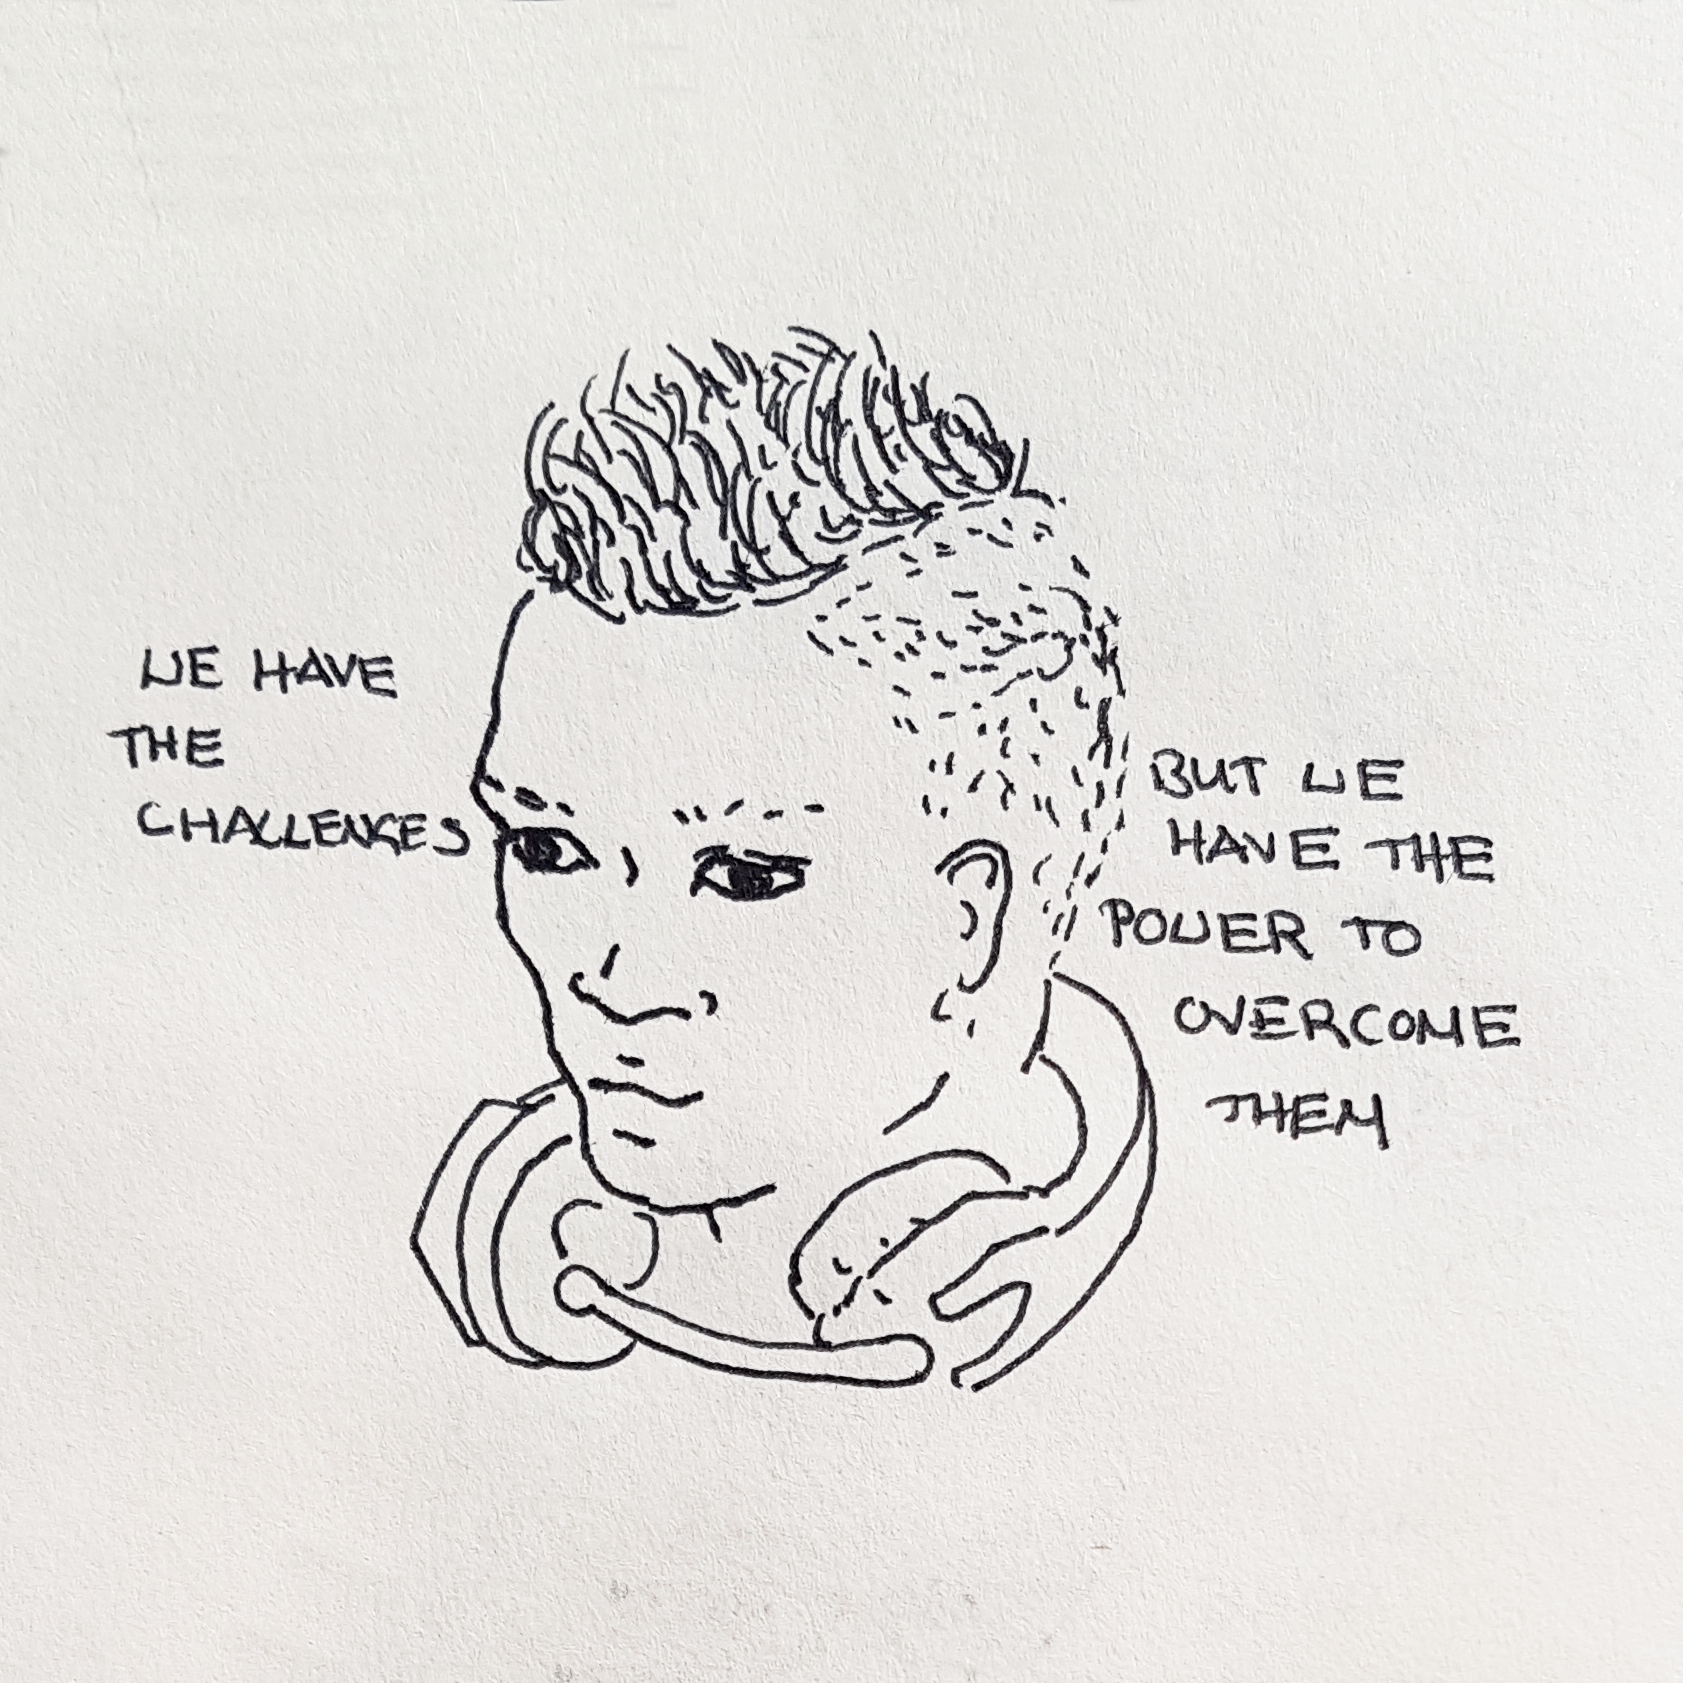 WE HAVE
THE
CHALLENGES
BUT WE
HAVE THE
POWER TO
OVERCOME
THEM